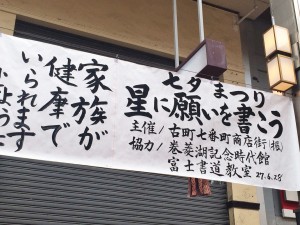 七夕まつり
星に願いを書こう
主催/古町七番町商店街(振)
協力/巻菱湖記念時代館
富士書道教室 27.6.28
家族が
健康で
いられます